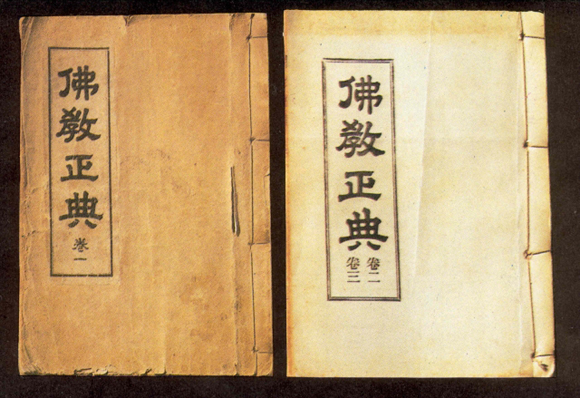 佛教正典
卷一
佛教正典
卷二
卷三